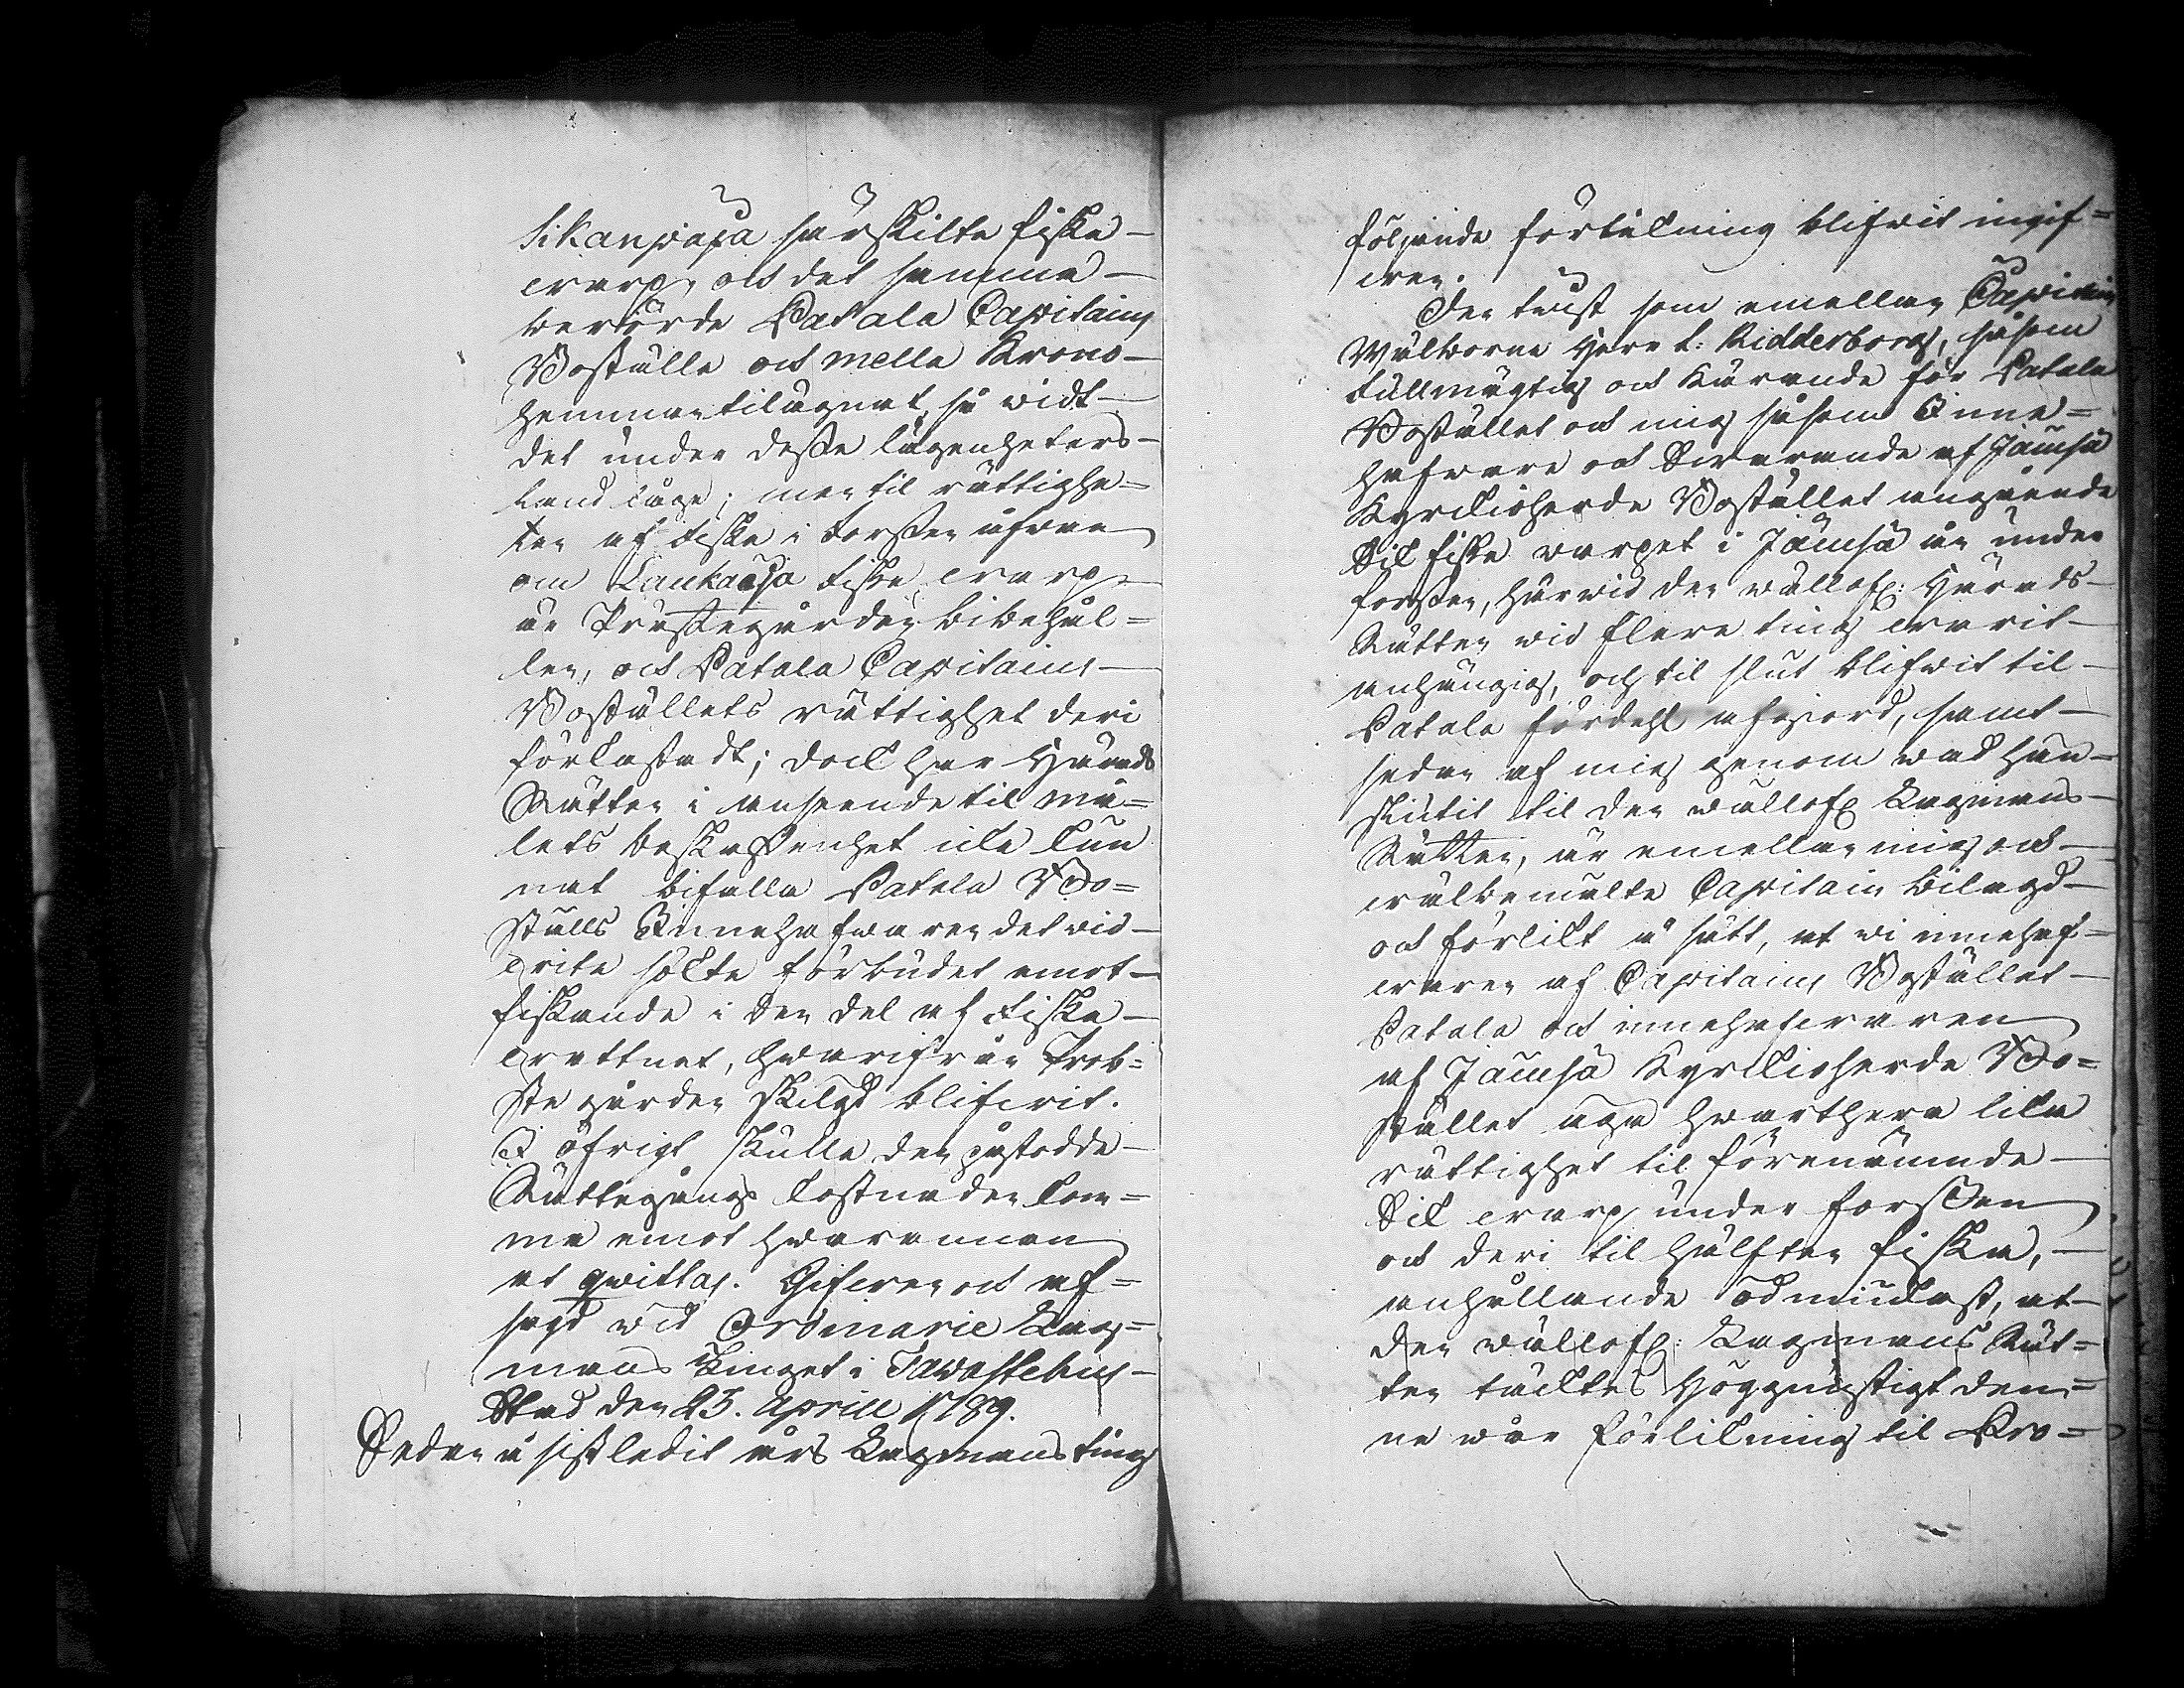 Sikanpaja särskilte fiske-
warp, och det samma
berörde Patala Capitains
Boställe och mella Krono-
hemman tilägnat, så widt
det under desse lägenheters
land låge; men til rättighe-
ten af fiske i Forssen åfwan
om Laukaoja Fiske warp
är Prästegården bibehål-
len, och Patala Capitains
Boställets rättighet deri
förkastadt; dock har Härads
Rätten i anseende til må-
lets beskaffenhet icke kun
nat bifalla Patala Bo-
ställs Innehafwaren det wid
wite sökte förbudet emot
fiskande i den del af Fiske-
wattnet, hwarifrån Prob-
stegården skilgd blifwit.
I öfrigt skulle den påstodde
Rättegångs kostnaden kom-
ma emot hwarannan
at qwittas. Gifwen och af-
sagd wid Ordinarie Lag-
mans Tinget i Tawastehus
Stad den 25. Aprill 1789.
Sedan å sistledit års Lagmans ting
följande förlikning blifwit ingif-
wen.
Den twist som emellan Capitain
Wälborne Herr L: Ridderborg, såsom
Fullmägtig och Kärande för Patala
Bostället och mig såsom Inne-
hafware och Swarande af Jämsä
Kyrckioherde Bostället angående
Sik fiske warpet i Jämsä ån under
forssen, härwid den wällofl: Härads
Rätten wid flere ting warit
anhängig, och til slut blifwit til
Patala fördehl afgiord, samt
sedan af mig genom wad hän-
skutit til den wällofl: Lagmans
Rätten, är emellan mig och
wälbemälte Capitain bilagd
och förlikt å sätt, at wi innehaf-
waren af Capitains Bostället
Patala och innehafwaren
af Jämsä Kyrckioherde Bo-
stället äga hwarthera lika
rättighet til förenämnde
Sik warp under forssen
och deri til hälften fiska,
anhållande ödmiukast, at
den wällofl: Lagmans Rät-
ten täcktes Höggunstigt den-
na wår förlikning til Pro-